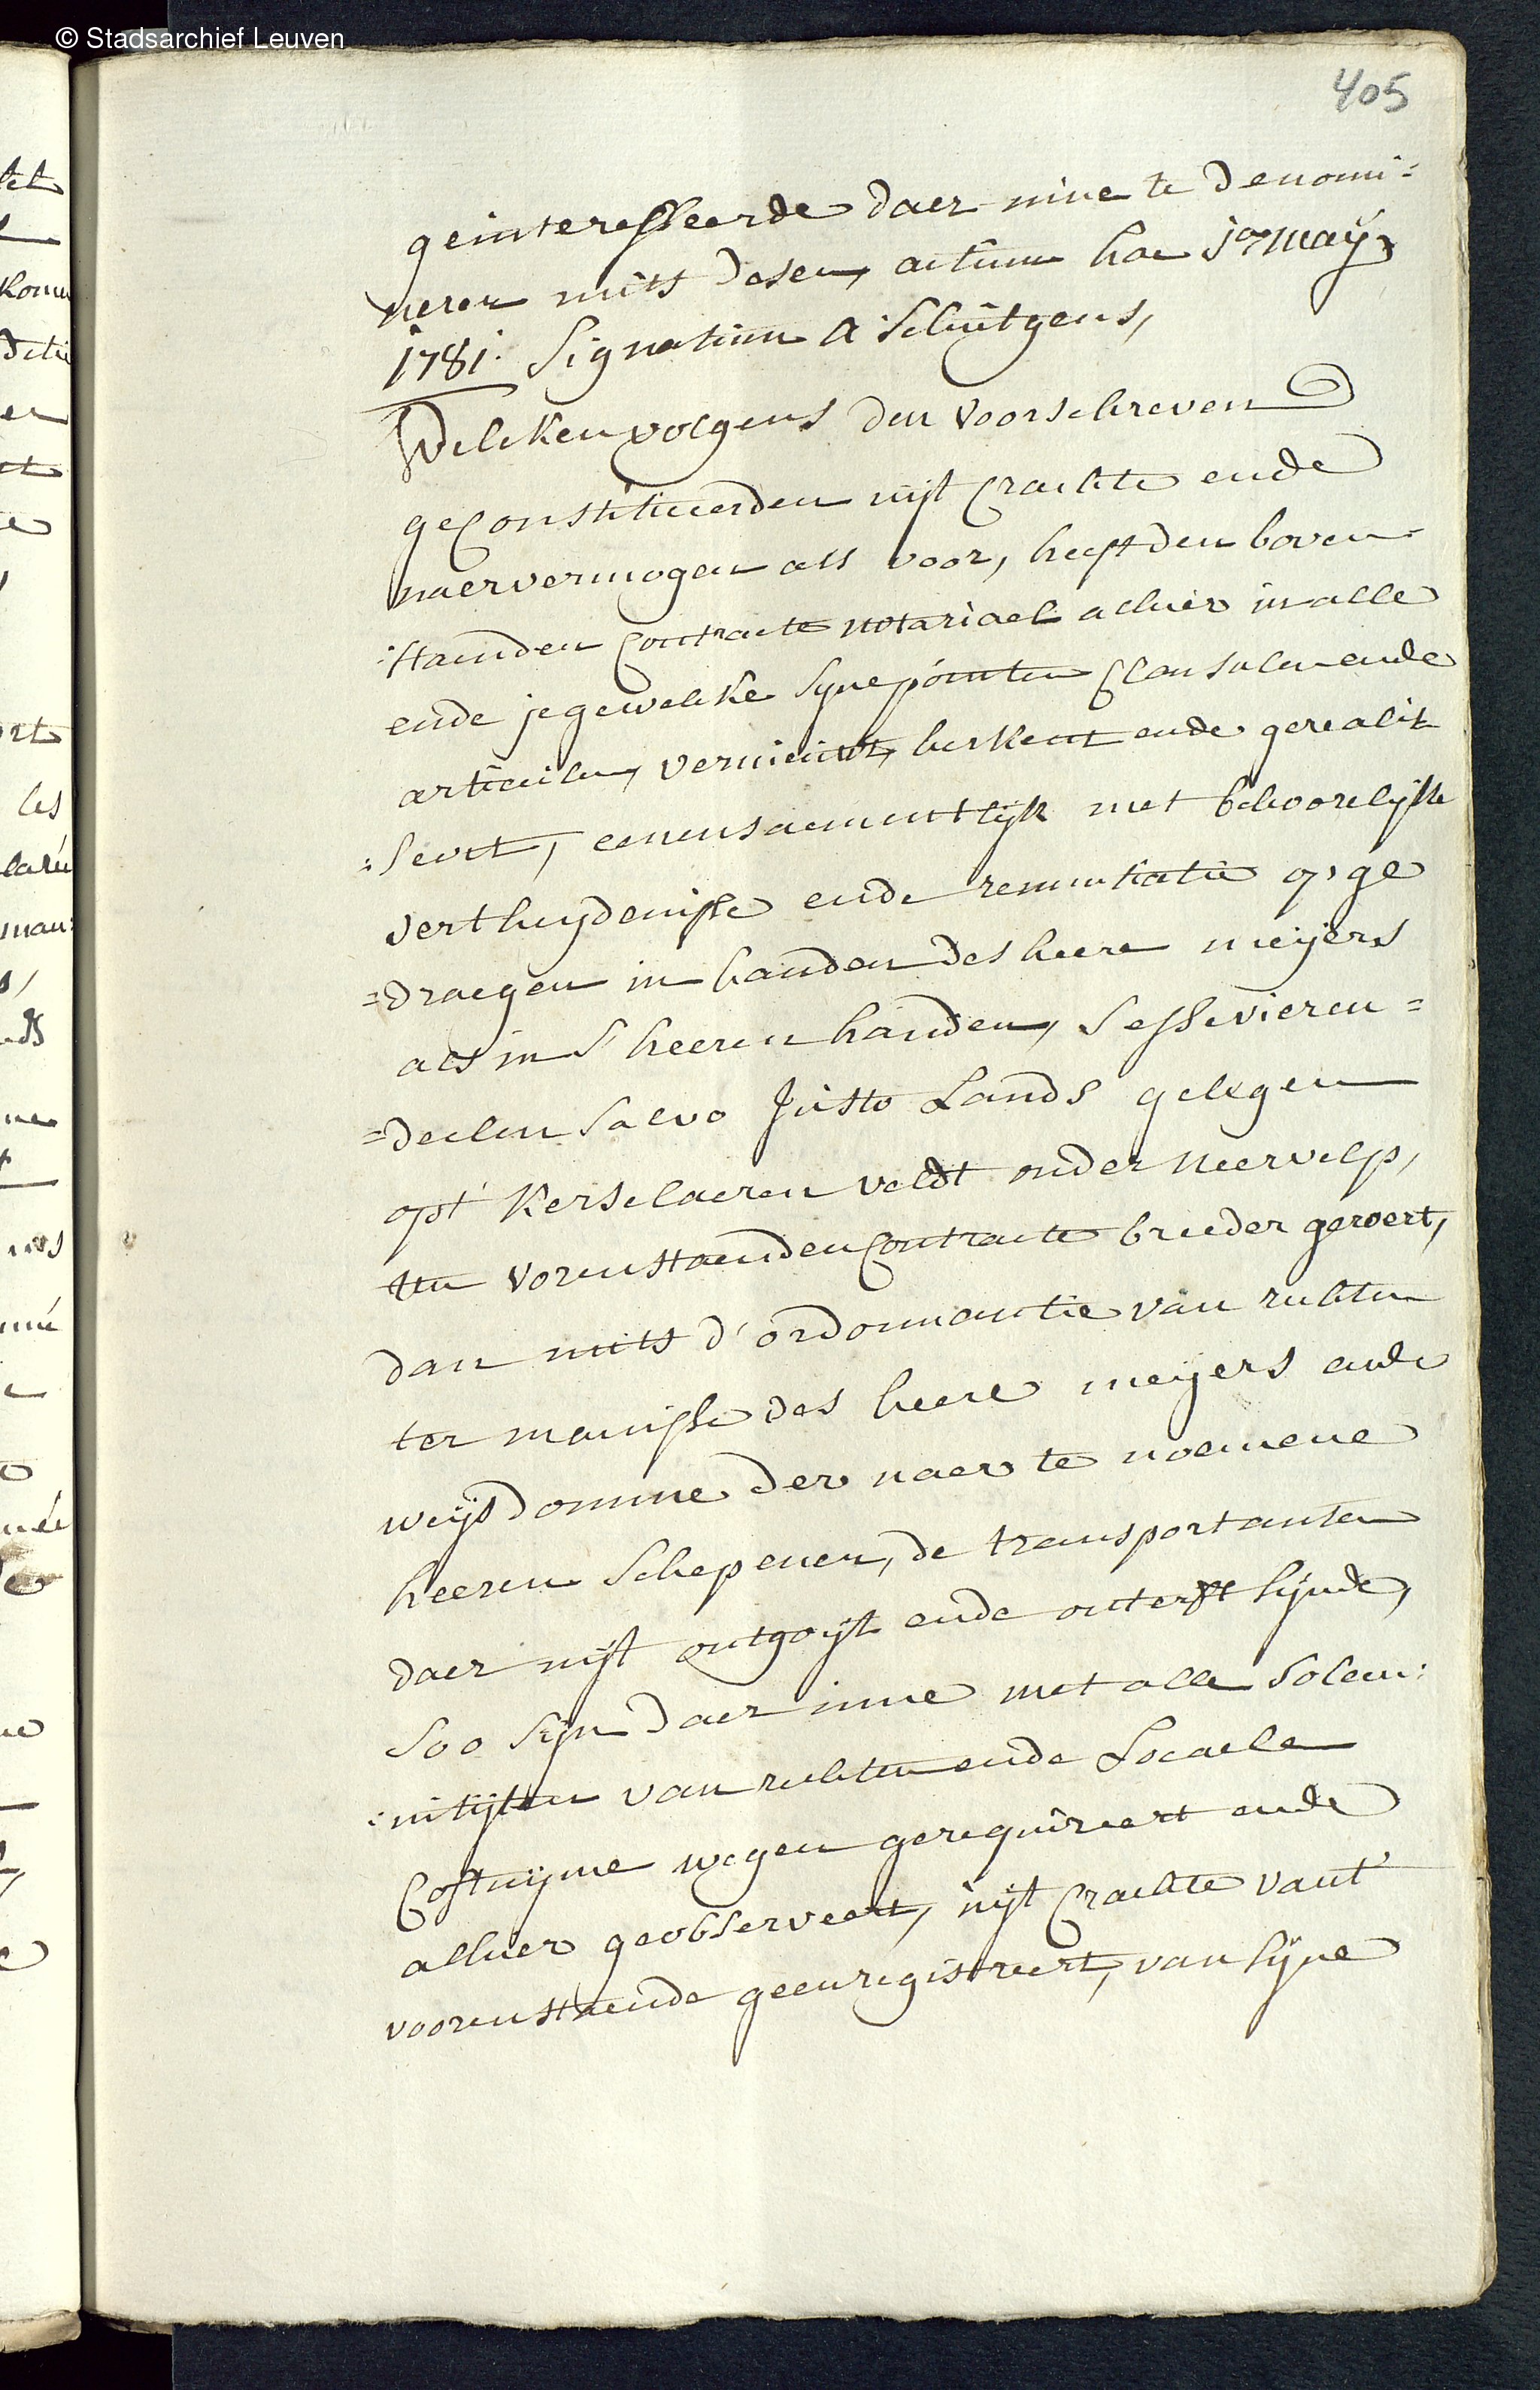 © Stadsarchief Leuven
405
geinteresseerde daer inne te denomi=
neren mits desen, actum hac 1a maÿ
1781. Signatum A Schutgens,
Welcken volgens den voorschreven
geconstitueerden uijt crachte ende
naervermogen als voor, heeft den boven=
:staenden contracte notariael alhier in alle
ende jegewelcke syne pointen clausulen ende
articulen, vernieuwt, herkent ende gerealis
:seert, eenensaementlijk met behoorelijke
verthuijdenisse ende renuntiatie opge
=draegen in handen des heere meijers
als in s'heeren handen, sesse vieren=
=deelen salvo justo Lands gelegen
opt' kerselaeren veldt onder neervelp,
ten vorenstaenden contracte breeder geroert,
dan mits d'ordonnantie van rechten
ter manisse des heere meijers ende
weijsdomme der naer te noemene
heeren schepenen, de transportanten
daer uijt ontgoijt ende onterft sijnde,
soo sijn daer inne met alle solem:
:nitijten van rechten ende Locaele
Costuijme wegen gerequireert ende
alhier geobserveert, uijt crachte vant'
voorenstaende geenregistreert, van sijne